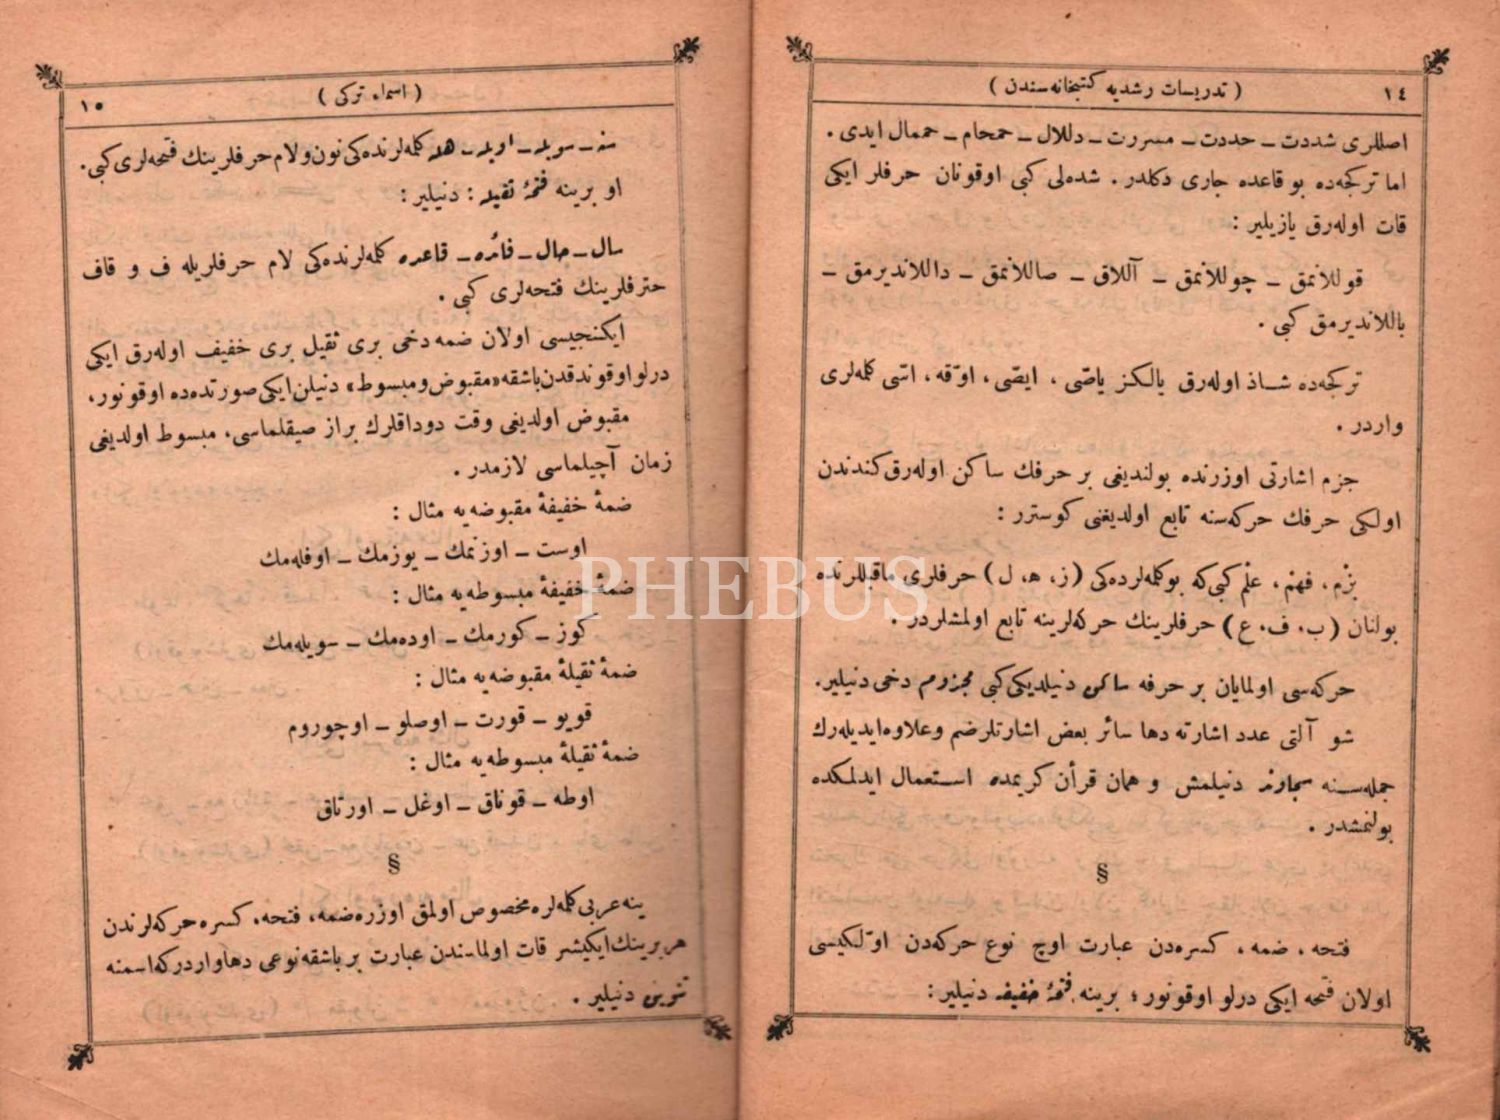 ١٤
( تدريسات رشديه كتبخانه‌سندن )
اصللرى شددت ــ حددت ــ مسررت ــ دللال ــ حمحام ــ حممال ايدى .
اما تركجه‌ده بو قاعده جارى دكلدر . شده‌لى كبى اوقونان حرفلر ايكى
قات اوله‌رق يازيلير :
قوللانمق ــ چوللانمق ــ آللاق ــ صاللانمق ــ داللانديرمق ــ
باللانديرمق كبى .
تركجه‌ده شاذ اوله‌رق يالكز ياصّى ، ايصّى ، اوقّه ، اتسى كلمه‌لرى
واردر .
جزم اشارتى اوزرنده بولنديغى بر حرفك ساكن اوله‌رق كندندن
اولكى حرفك حركه‌سنه تابع اولديغنى كوسترر :
بزْم ، فهْم ، علْم كبى كه بوكلمه‌لرده‌كى ( ز ، ه ، ل ) حرفلرى ماقبللرنده
بولنان ( ب ، ف ، ع ) حرفلرينك حركه‌لرينه تابع اولمشلردر .
حركه‌سى اولمايان بر حرفه ساكن دنيلديكى كبى مجزوم دخى دنيلير .
شو آلتى عدد اشارته دها سائر بعض اشارتلر ضم وعلاوه ايديله‌رك
جمله‌سنه سجاوند دنيلمش و همان قرآن كريمده استعمال ايدلمكده
بولنمشدر .
§
فتحه ، ضمه ، كسره‌دن عبارت اوچ نوع حركه‌دن اوّلكيسى
اولان فتحه ايكى درلو اوقونور ؛ برينه فتحهٔ خفيفه دنيلير :
( اسماء تركى )
١٥
سنه ــ سويله ــ اويله ــ هله كلمه‌لرنده‌كى نون ولام حرفلرينك فتحه‌لرى كبى .
او برينه فتحهٔ ثقيله : دنيلير :
سال ــ صال ــ فائده ــ قاعده كلمه‌لرنده‌كى لام حرفلريله ف و قاف
حترفلرينك فتحه‌لرى كبى .
ايكنجيسى اولان ضمه دخى برى ثقيل برى خفيف اوله‌رق ايكى
درلو اوقوندقدن باشقه «مقبوض ومبسوط» دنيلن ايكى صورتده‌ده اوقونور ،
مقبوض اولديغى وقت دوداقلرك براز صيقلماسى ، مبسوط اولديغى
زمان آچيلماسى لازمدر .
ضمهٔ خفيفهٔ مقبوضه‌يه مثال :
اوست ــ اوزنمك ــ يوزمك ــ اوفله‌مك
ضمهٔ خفيفهٔ مبسوطه‌يه مثال :
كوز ــ كورمك ــ اوده‌مك ــ سويله‌مك
ضمهٔ ثقيلهٔ مقبوضه‌يه مثال :
قويو ــ قورت ــ اوصلو ــ اوچوروم
ضمهٔ ثقيلهٔ مبسوطه‌يه مثال :
اوطه ــ قوناق ــ اوغل ــ اورتاق
§
ينه عربى كلمه‌لره مخصوص اولمق اوزره ضمه ، فتحه ، كسره حركه‌لرندن
هر برينك ايكيشر قات اولماسندن عبارت بر باشقه نوعى دها واردركه اسمنه
تنوين دنيلير .
PHEBUS